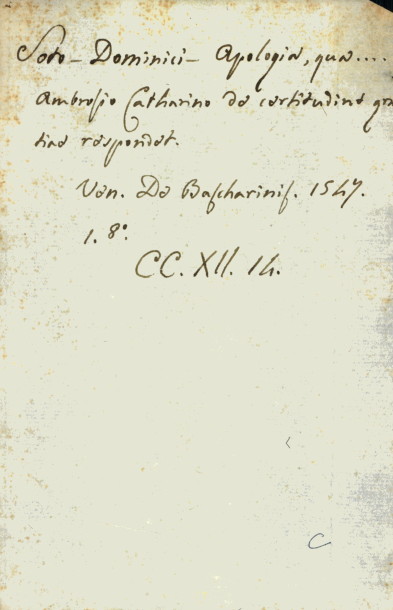 Soto - Dominici - Apologia, qua....
Ambrosio Catharino de certitudine gra
tiae respondet.
Ven. De Bascharinis. 1547.
1. 8°.
CC. XII. 14.
C